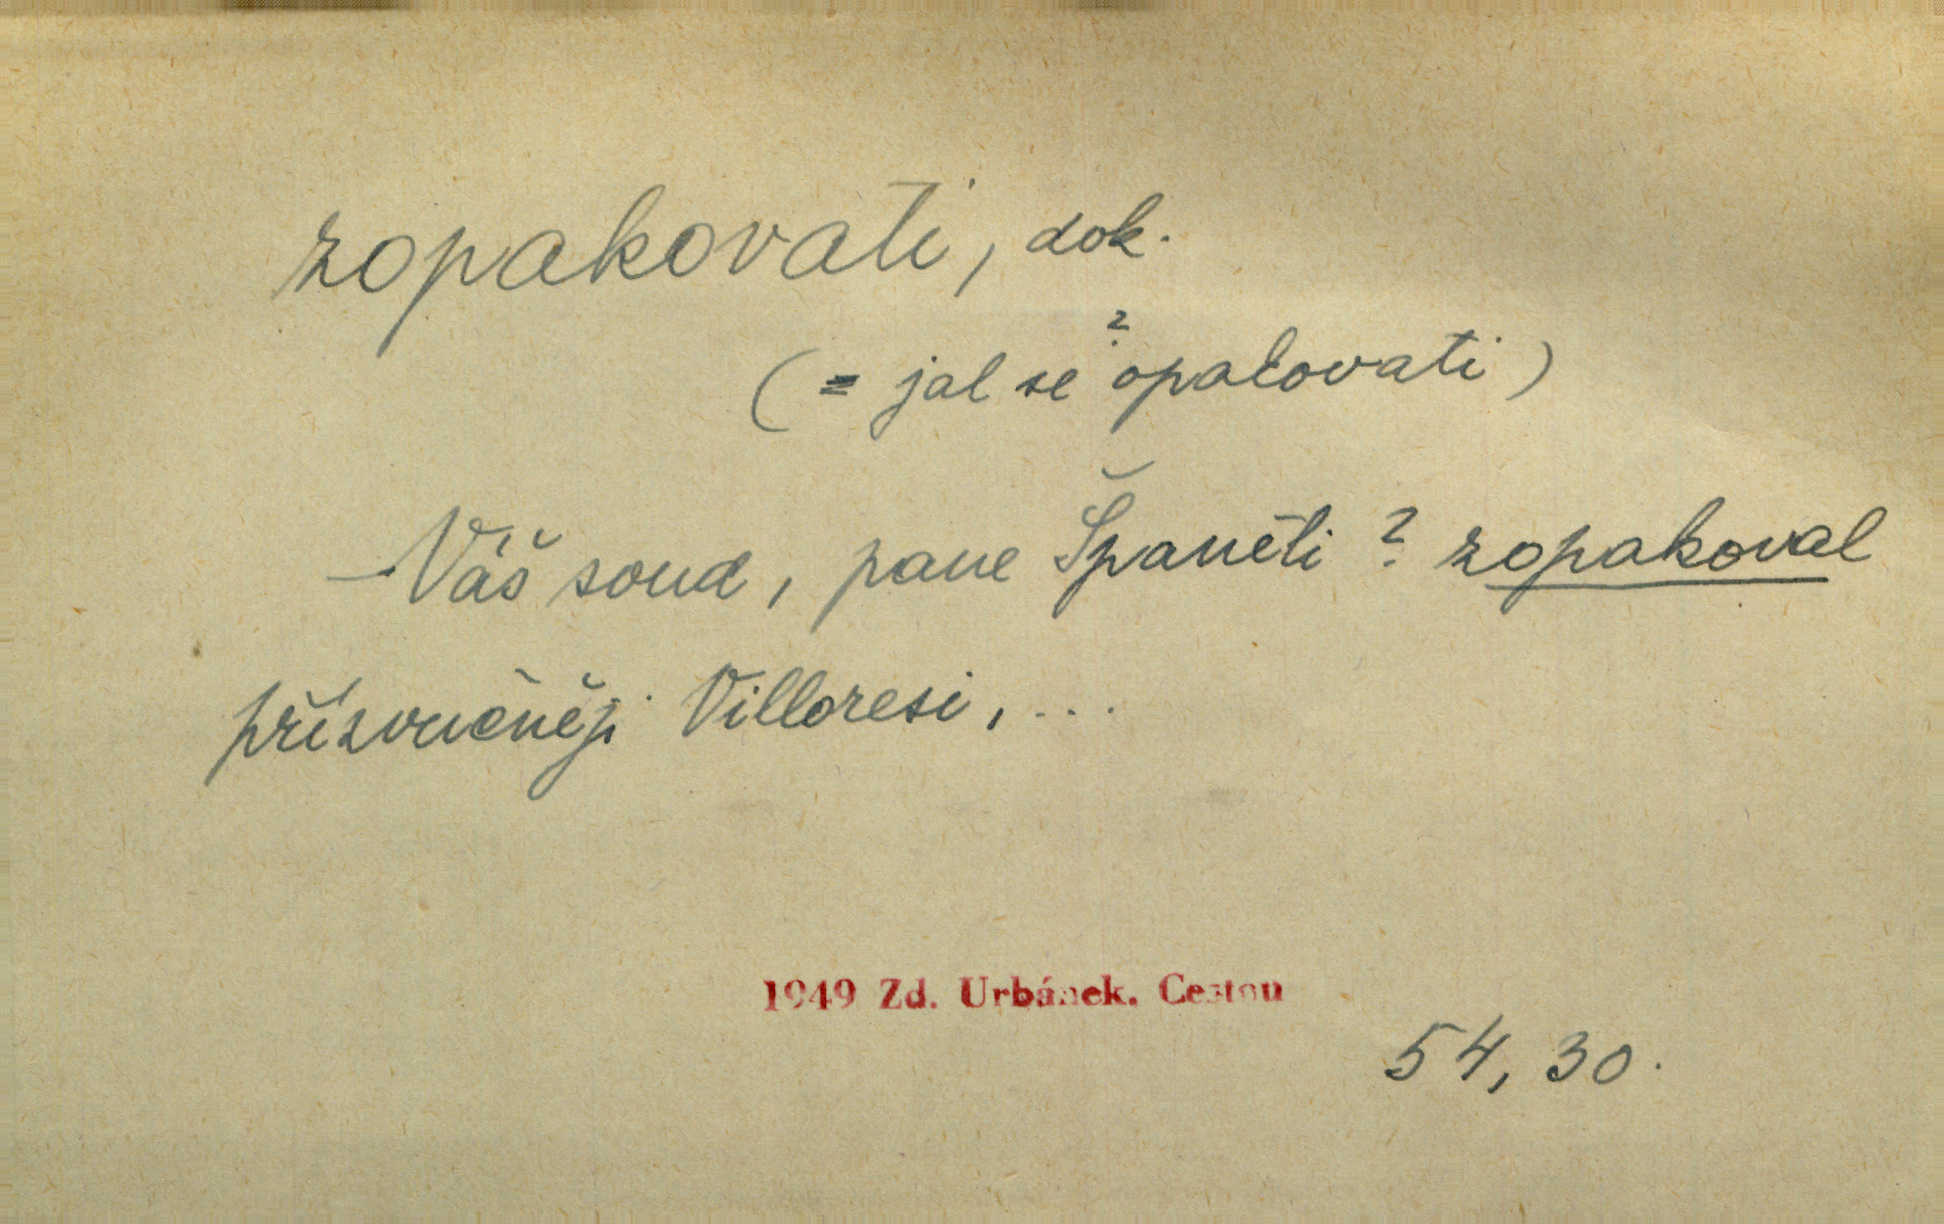 zopakovati, dok.
(= jal se ? opakovati)
– Váš soud, pane Španěli? zopakoval
přízvučněji Villoresi, ...
1949 Zd. Urbánek. Cestou
54, 30.